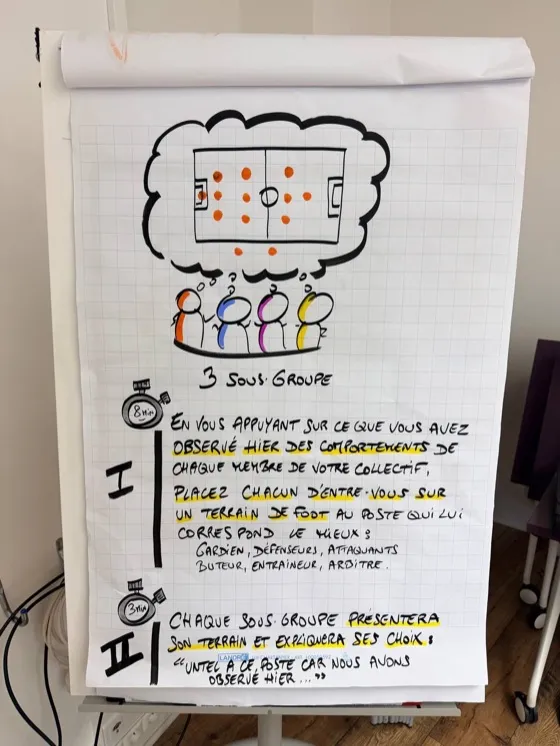 3 SOUS-GROUPE
8 MIN
EN VOUS APPUYANT SUR CE QUE VOUS AVEZ
OBSERVÉ HIER DES COMPORTEMENTS DE
CHAQUE MEMBRE DE VOTRE COLLECTIF,
I
PLACEZ CHACUN D'ENTRE-VOUS SUR
UN TERRAIN DE FOOT AU POSTE QUI LUI
CORRESPOND LE MIEUX :
GARDIEN, DÉFENSEURS, ATTAQUANTS
BUTEUR, ENTRAINEUR, ARBITRE.
3 MIN
CHAQUE SOUS-GROUPE PRÉSENTERA
SON TERRAIN ET EXPLIQUERA SES CHOIX :
II
"UNTEL A CE POSTE CAR NOUS AVONS
OBSERVÉ HIER..."